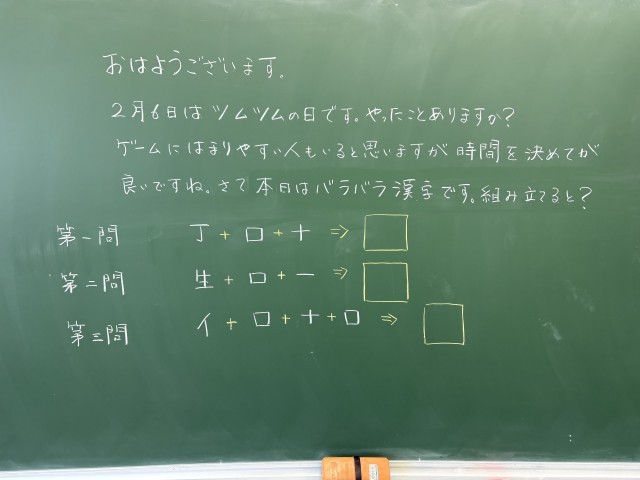 おはようございます。
2月6日はツムツムの日です。やったことありますか?
ゲームにはまりやすい人もいると思いますが時間を決めてが
良いですね。さて本日はバラバラ漢字です。組み立てると?
第一問 丁+口+十⇒□
第二問 生+口+一⇒□
第三問 イ+口+十+口⇒□